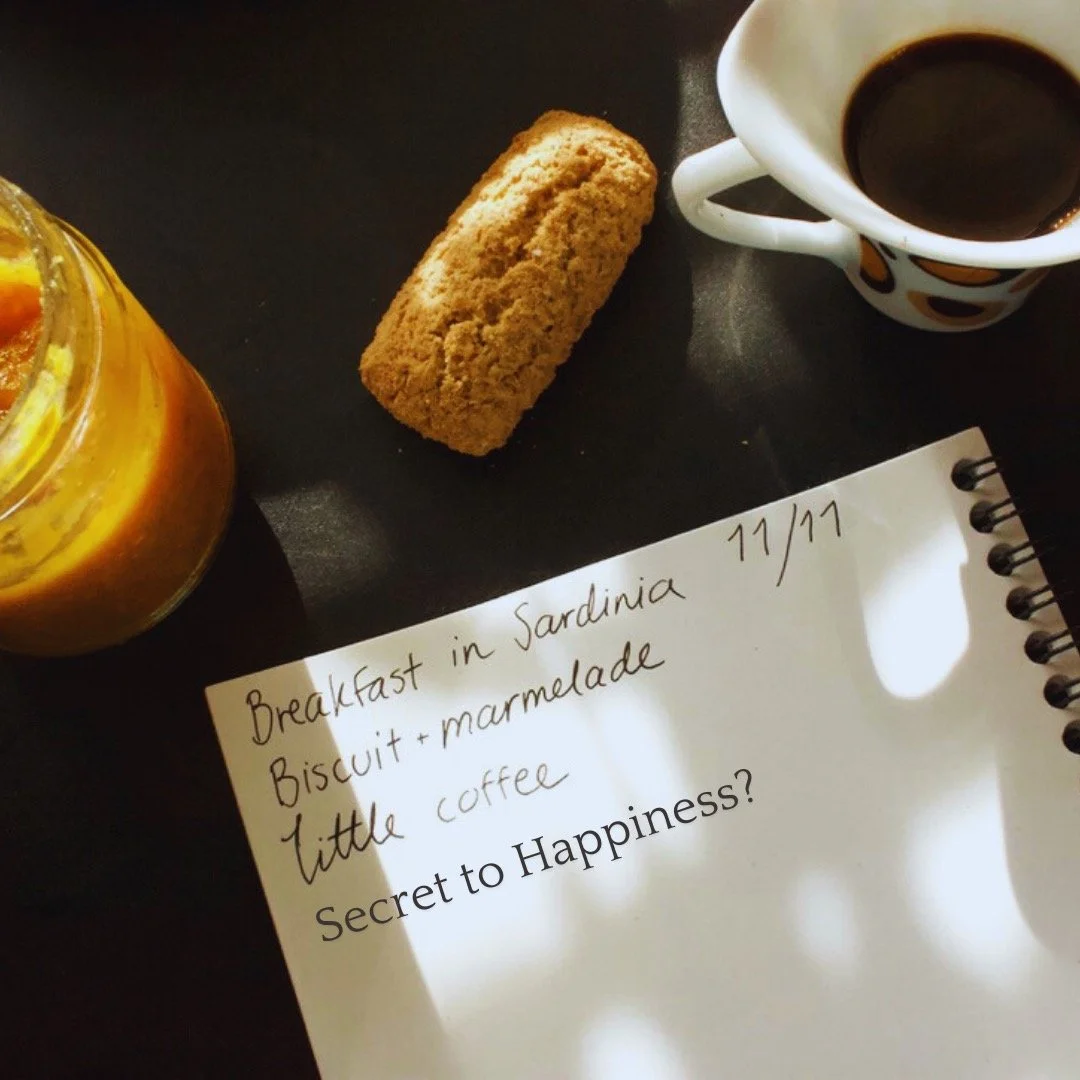 Breakfast in Sardinia 11/11
Biscuit + marmelade
little coffee
Secret to Happiness?